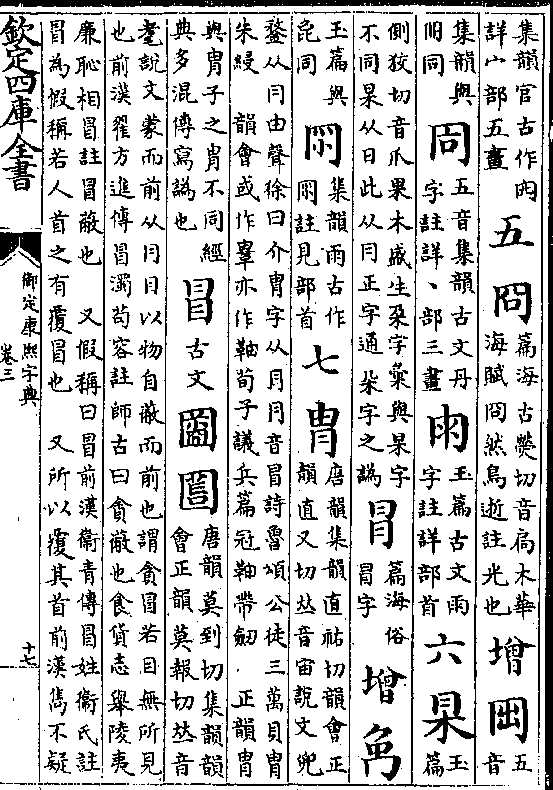 集韻官古作
詳宀部五畫
五
冏
篇海古熒切音扃木華
海賦冏然鳥逝註光也
增
五
音
集韻與
冊同
五音集韻古文丹
字註詳丶部三畫
玉篇古文雨
字註詳部首
六
玉
篇
側狡切音爪果木盛生朶字彙與杲字
不同杲从日此从冃正字通朶字之譌
冐
篇海俗
冒字
增
玉篇與
同
集韻雨古作
註見部首
七
冑
唐韻集韻直祐切韻會正
韻直又切𠀤音宙說文兜
鍪从冃由聲徐曰介冑字从冃冃音冒詩魯頌公徒三萬貝冑
朱綅 韻會或作亦作䩜荀子議兵篇冠䩜帶劒 正韻冑
與冑子之冑不同經
典多混傳寫譌也
冒
古文
唐韻莫到切集韻韻
會正韻莫報切𠀤音
耄說文蒙而前从冃目以物自蔽而前也謂貪冒若目無所見
也前漢翟方進傳冒濁苟容註師古曰貪蔽也食貨志舉陵夷
廉恥相冒註冒蔽也 又假稱曰冒前漢衞青傳冒姓衞氏註
冒為假稱若人首之有覆冒也 又所以覆其首前漢雋不疑
欽定四庫全書
御定康熙字典
卷三
十七